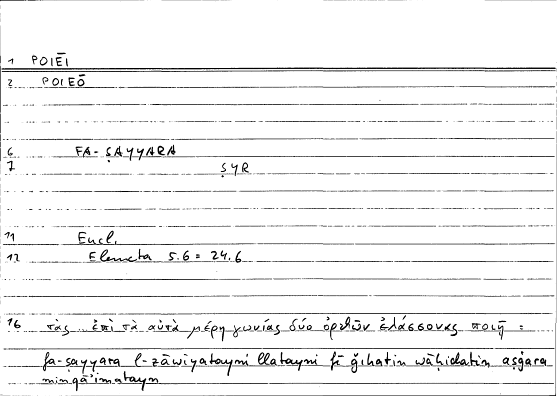 1 POIĒI
2 POIEŌ
6 FA-ṢAYYARA
7 ṢYR
11 Eucl.
12 Elementa 5.6 = 24.6
16 τὰς ἐπὶ τὰ αὐτὰ μέρη γωνίας δύο ὀρθῶν ἐλάσσονας ποιῇ :
fa-ṣayyara l-zāwiyatayni llatayni fī ǧihatin wāḥidatin aṣġara
min qā'imatayn